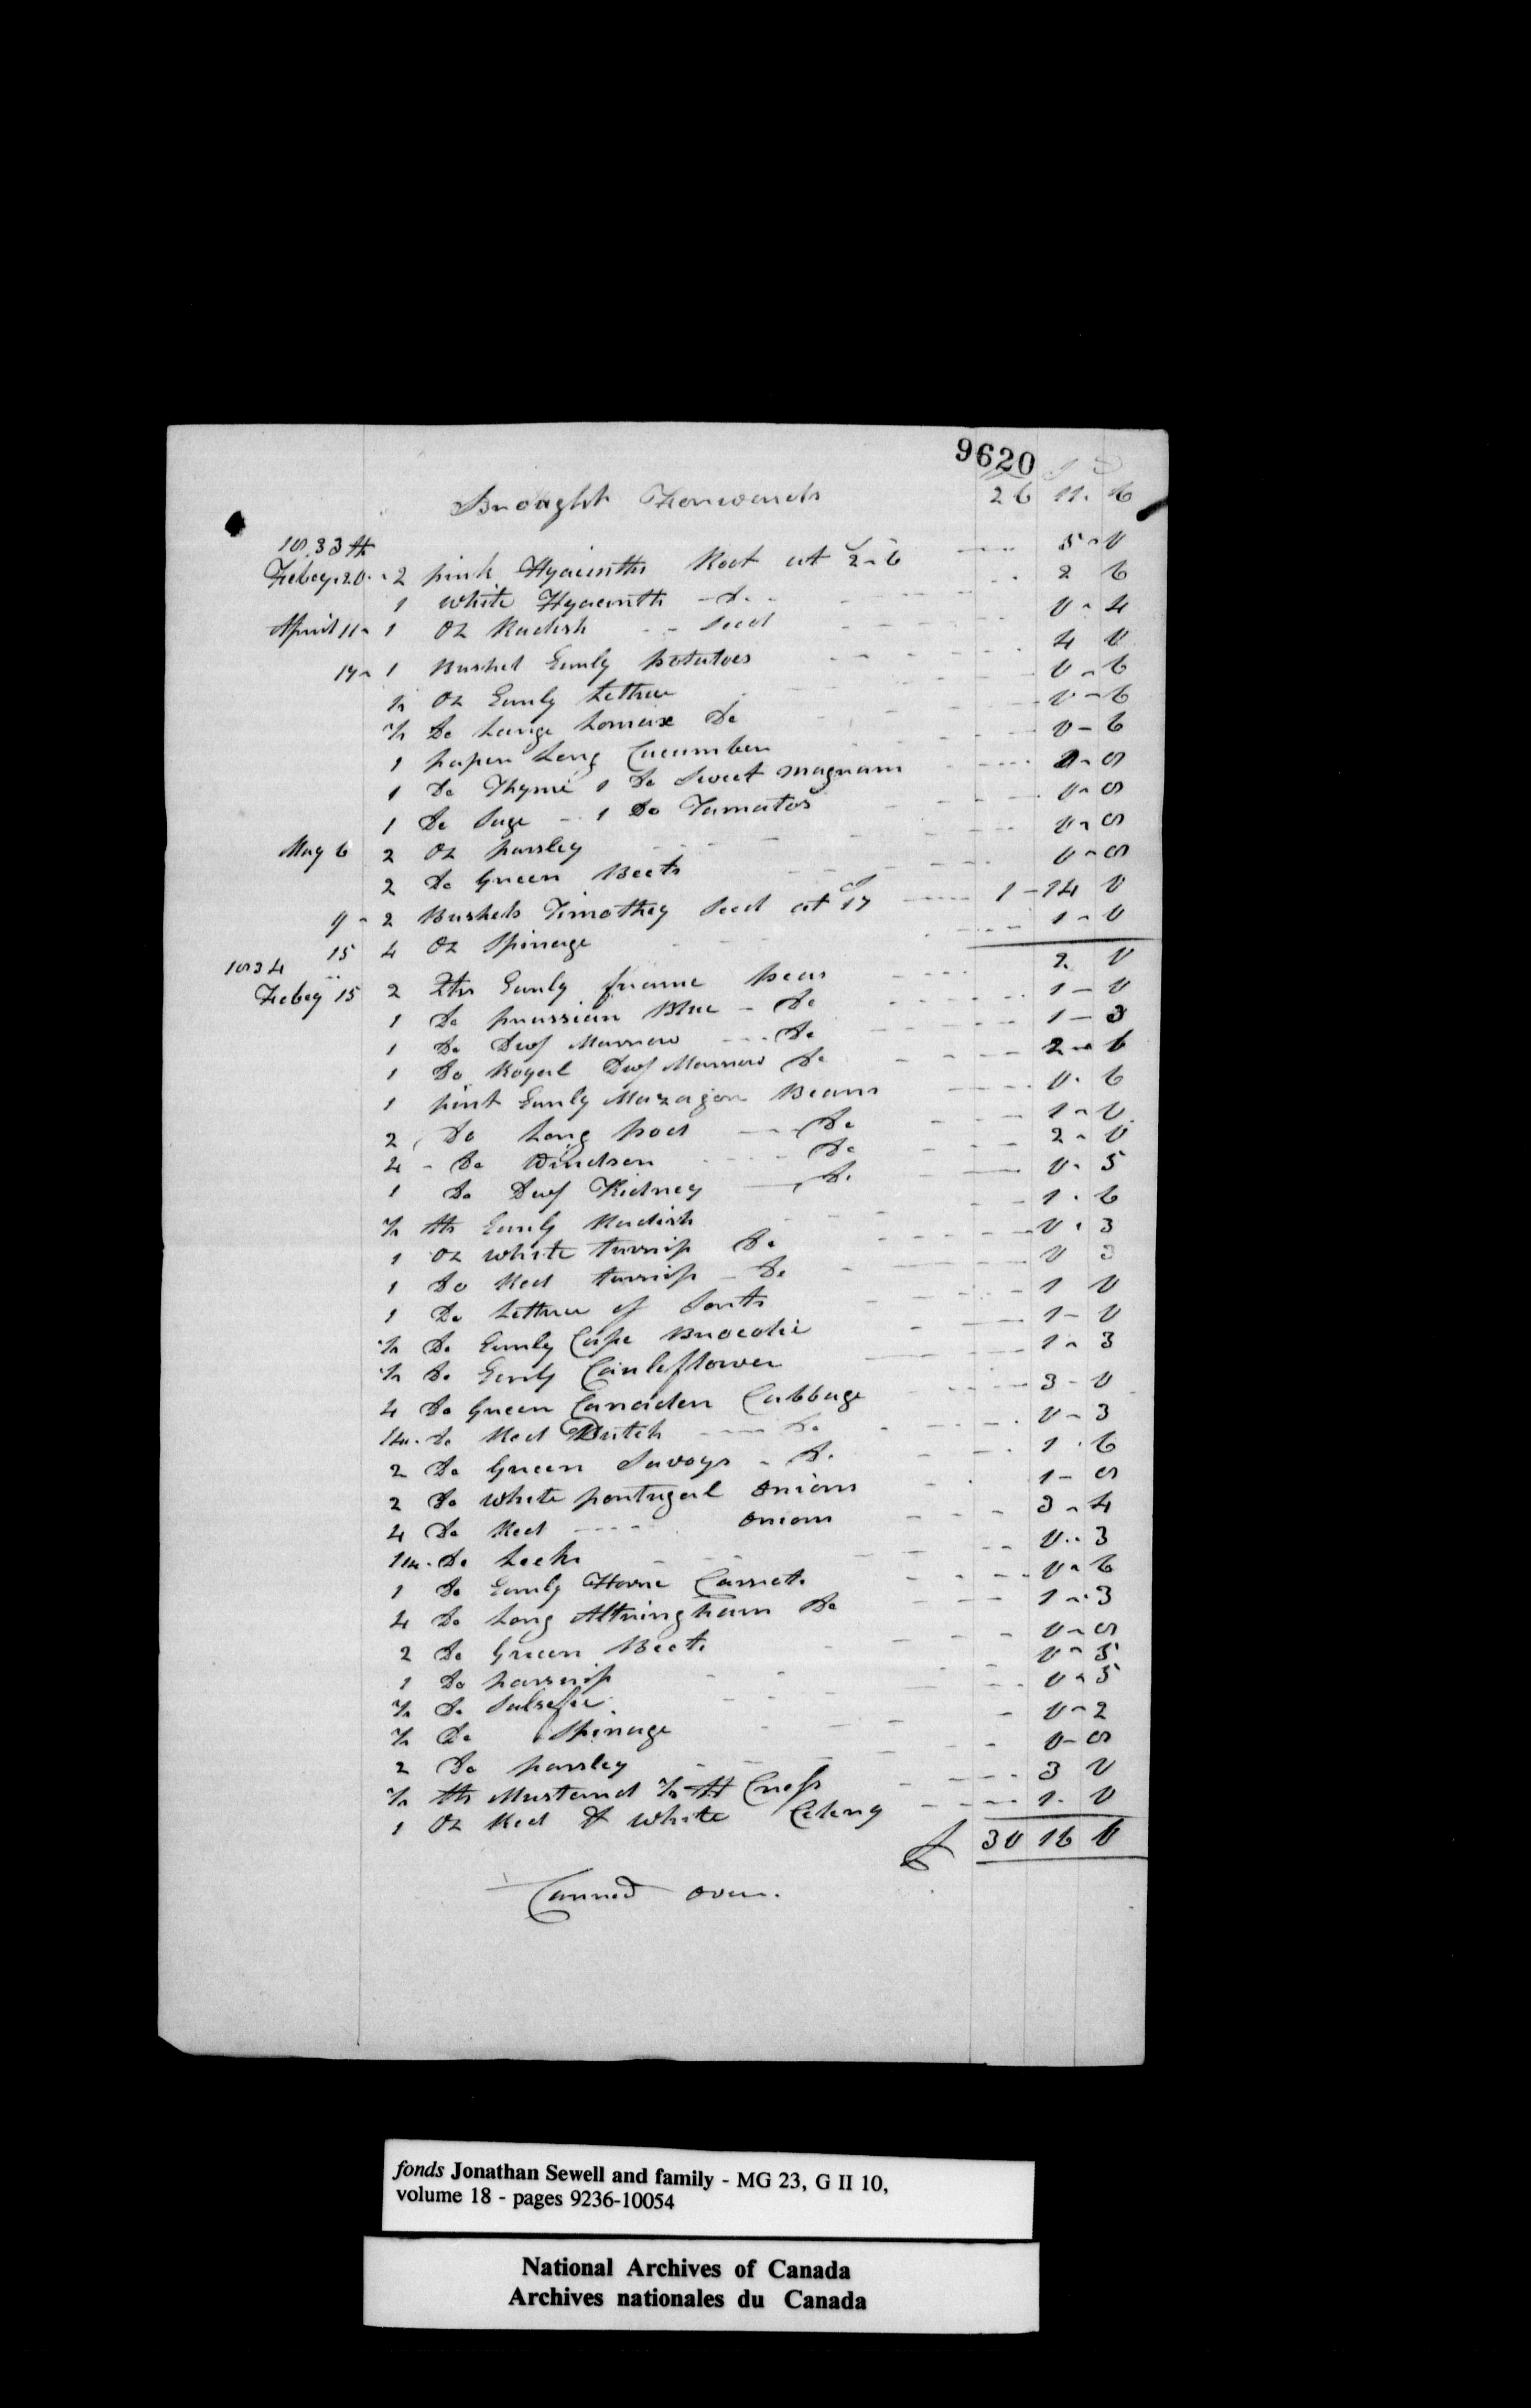 9620
£ S D
Brought Forwards 26 11. 6
1833 th
Febey. 20. - 2 pink Hyacinths Root at 2-6 5 - 0
1 white Hyacinth - Do - 2 6
April 11 - 1 Oz Radish - - Seed 0 - 4
17 - 1 Bushel Early potatoes 4 0
½ Oz Early Lettuce 0 - 6
½ Do Large Do 0 - 6
1 paper Long Cucumber 0 - 6
1 Do Thyme 1 Do Sweet magnam 0 - 8
1 Do Sage - 1 Do Tamatos 0 - 8
May 6 2 Oz parsley 0 - 8
2 Do Green Beets 0 - 8
9 - 2 Bushels Timothey Seed at 17 1 - 14 0
15 4 Oz Spinage 1 - 0
1834
Febey 15 2 Qts Early frame peas 2 0
1 Do prussian Blue - Do 1 - 0
1 Do Dwf Marrow --- Do 1 - 3
1 Do Royal Dwf Marrow Do 2 - 6
1 pint Early Mazagon Beans 0 - 6
2 Do Long pod --- Do 1 - 0
4 - Do Windsor --- Do 2 - 0
1 Do Dwf Kidney --- Do 0 - 5
½ lb Early Radish 1 - 6
1 Oz white turnip Do 0 - 3
1 Do Red turnip - Do 0 3
1 Do Lettuce of Sorts 1 0
½ Do Early Cape Brocolie 1 - 0
½ Do Early Cauleflower 1 - 3
4 Do Green Canaden Cabbage 3 - 0
¼ Do Red Dutch --- Do 0 - 3
2 Do Green Savoys - Do 1 - 6
2 Do white portugal onions 1 - 8
4 Do Red ---- onions 3 - 4
¼ Do Leeks 0 - 3
1 Do Early Horne Carrots 0 - 6
4 Do Long Altringham Do 1 - 3
2 Do Green Beets 0 - 8
1 Do parsnip 0 - 5
½ Do Salsefie 0 - 5
½ Do Spinage 0 - 2
2 Do parsley 0 - 8
½ lb Mustard ½ lb Cress 3 0
1 Oz Red & white Celery 1 - 0
£ 30 16 0
Carried over.
fonds Jonathan Sewell and family - MG 23, G II 10,
volume 18 - pages 9236-10054
National Archives of Canada
Archives nationales du Canada